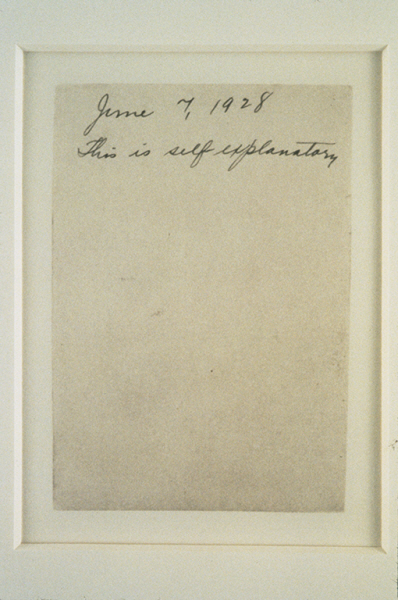 June 7, 1928
This is self explanatory